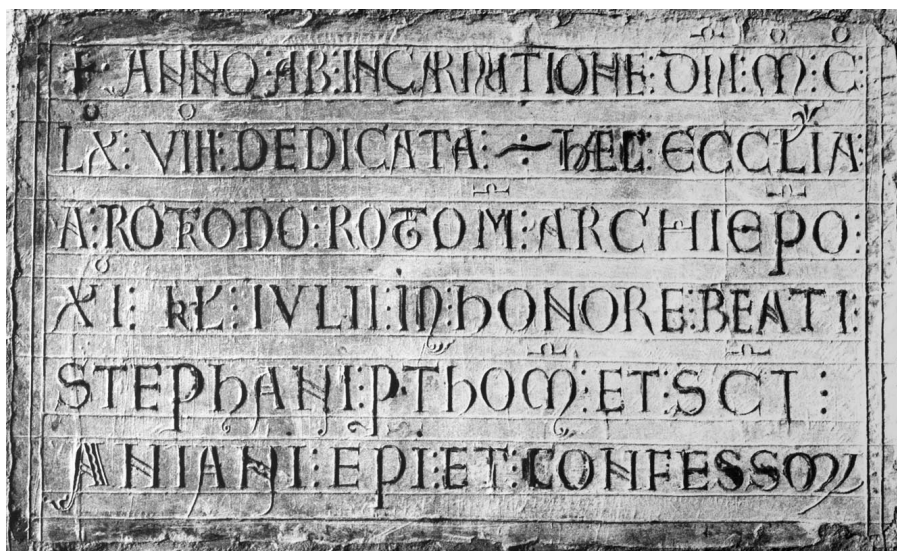 + ANNO : AB : INCARNATIONE : DNI : M : C :
LX : VIII : DEDICATA : ~ : HAEC : ECCLIA :
A : ROTRODO : ROTOM : ARCHIEPO :
XI : KL : IVLII : IN : HONORE : BEATI :
STEPHANI : PTHOM : ET : SCI :
ANIANI : EPI : ET : CONFESSORIS